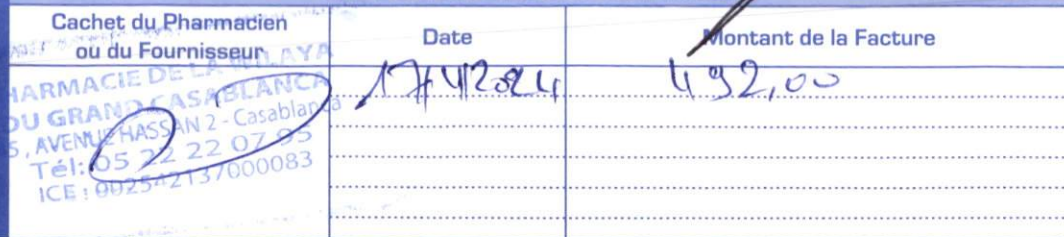 Cachet du Pharmacien
ou du Fournisseur
Date
Montant de la Facture
PHARMACIE DE LA WILAYA
DU GRAND CASABLANCA
5, AVENUE HASSAN 2 - Casablanca
Tél: 05 22 22 07 95
ICE : 002542137000083
17/4/2024
492,00